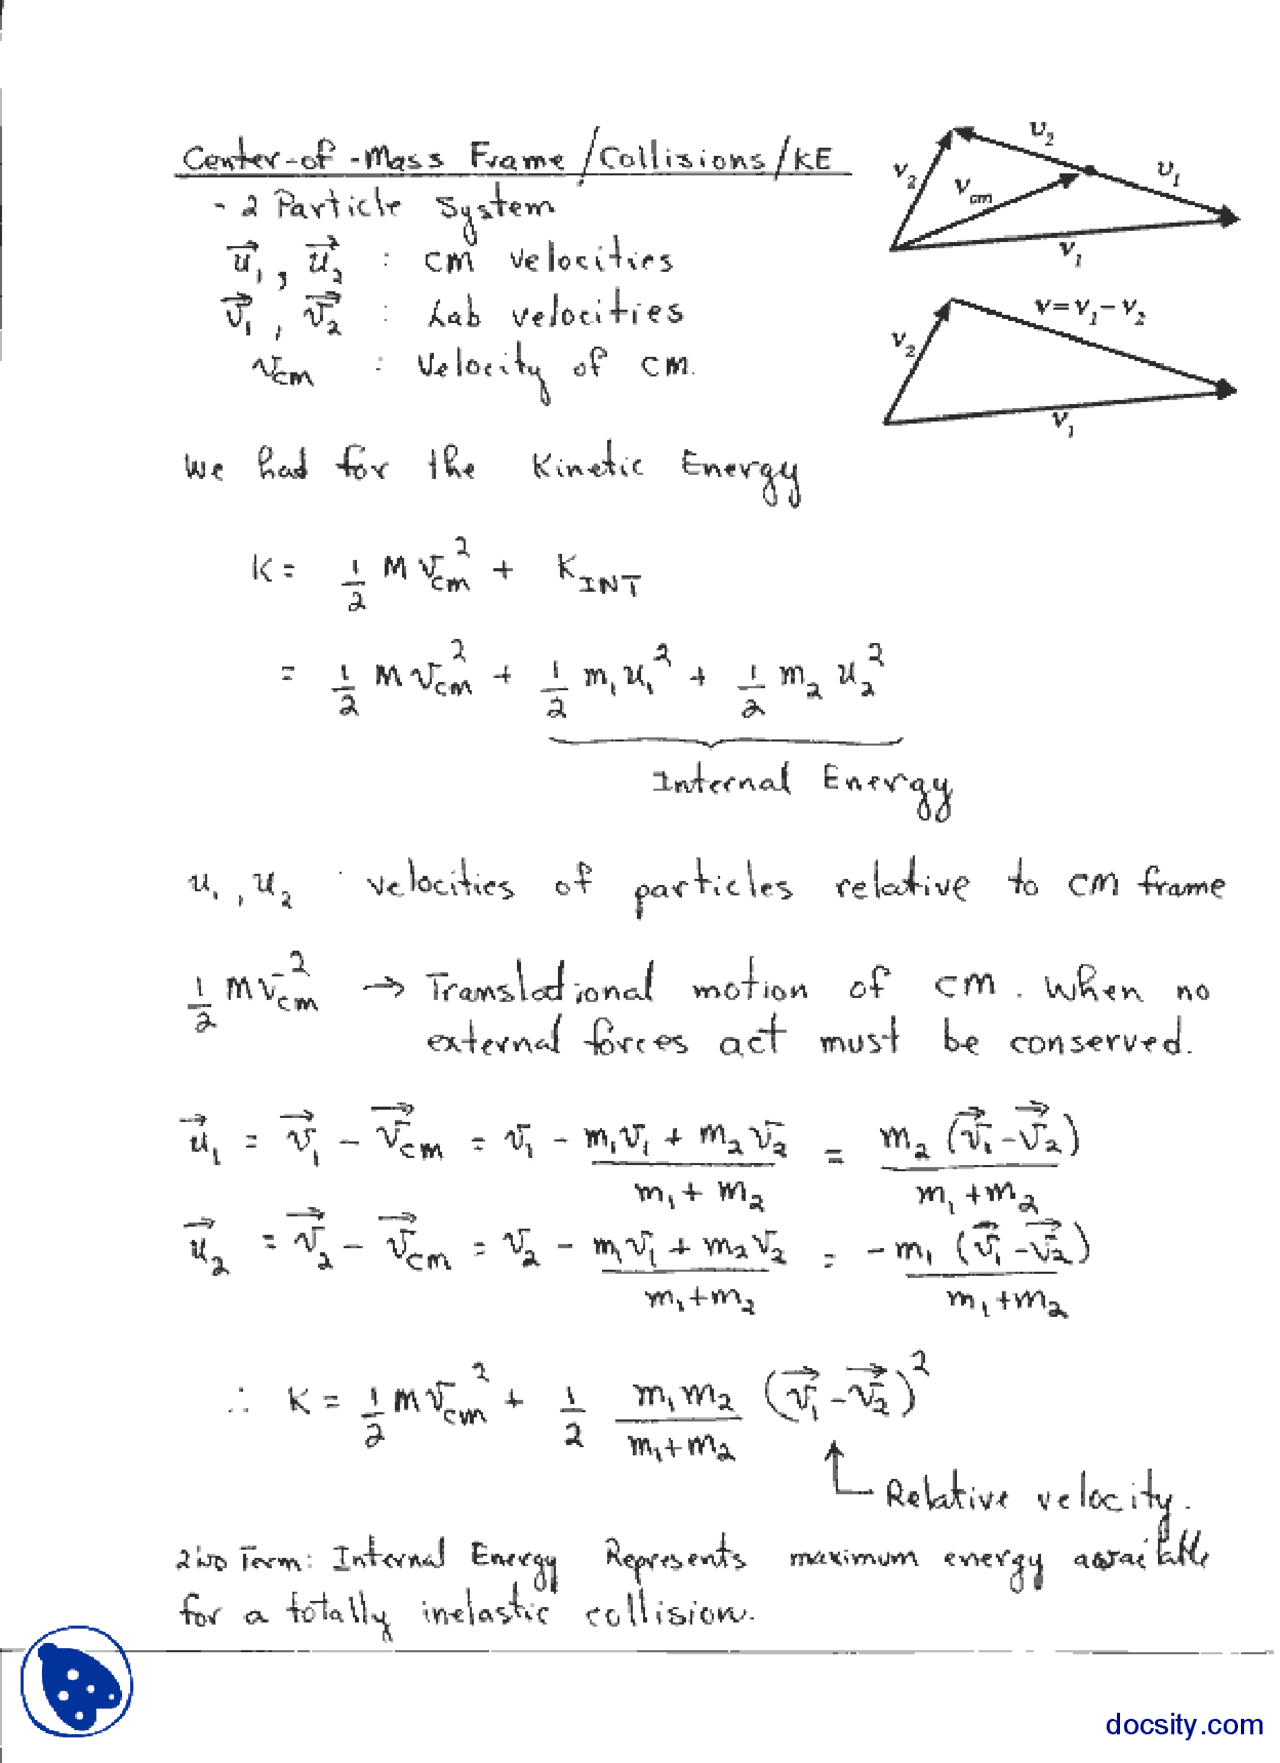 Center-of-Mass Frame/Collisions/KE
- 2 Particle System
u⃗₁, u⃗₂ : cm velocities
v⃗₁, v⃗₂ : Lab velocities
v_cm : Velocity of cm.
v₂ v_cm υ₂ υ₁ v₁
v₂ v=v₁-v₂ v₁
We had for the Kinetic Energy
K = 1/2 M v_cm² + K_INT
= 1/2 M v_cm² + 1/2 m₁u₁² + 1/2 m₂u₂²
Internal Energy
u₁, u₂ : velocities of particles relative to cm frame
1/2 M v_cm² → Translational motion of cm. When no
external forces act must be conserved.
u⃗₁ = v⃗₁ - v⃗_cm = v₁ - (m₁v₁ + m₂v₂)/(m₁ + m₂) = m₂(v⃗₁ - v⃗₂)/(m₁ + m₂)
u⃗₂ = v⃗₂ - v⃗_cm = v₂ - (m₁v₁ + m₂v₂)/(m₁ + m₂) = -m₁(v⃗₁ - v⃗₂)/(m₁ + m₂)
∴ K = 1/2 M v_cm² + 1/2 m₁m₂/(m₁+m₂) (v⃗₁ - v⃗₂)²
Relative velocity.
2ND Term: Internal Energy Represents maximum energy available
for a totally inelastic collision.
docsity.com